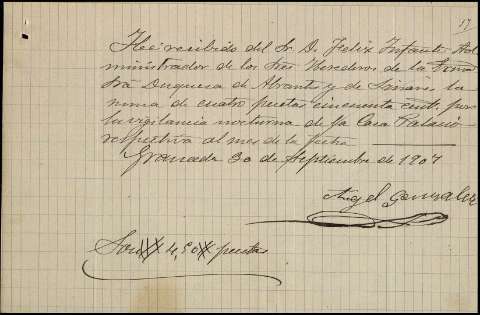 17
He recibido del Sr. D. Felix Infante Ad
ministrador de los Sres Herederos de la Exma
Sra Duquesa de Abrantes y de Linares la
suma de cuatro pesetas cincuenta cent. por
la vigilancia nocturna de la Casa Palacio
respectiva al mes de la fecha
Granada 30 de Septiembre de 1907
Angel Gonzalez
Son 4,50 pesetas